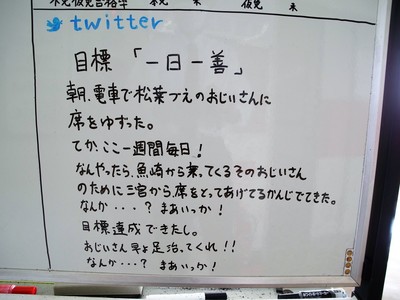 本免 未
仮免 未
twitter
目標「一日一善」
朝、電車で松葉づえのおじいさんに
席をゆずった。
てか、ここ一週間毎日!
なんやったら、魚崎から乗ってくるそのおじいさん
のために三宮から、席をとってあげてるかんじでてきた。
なんか・・・?まあいっか!
目標達成できたし。
おじいさん早よ足治してくれ!!
なんか・・・?まあいっか!